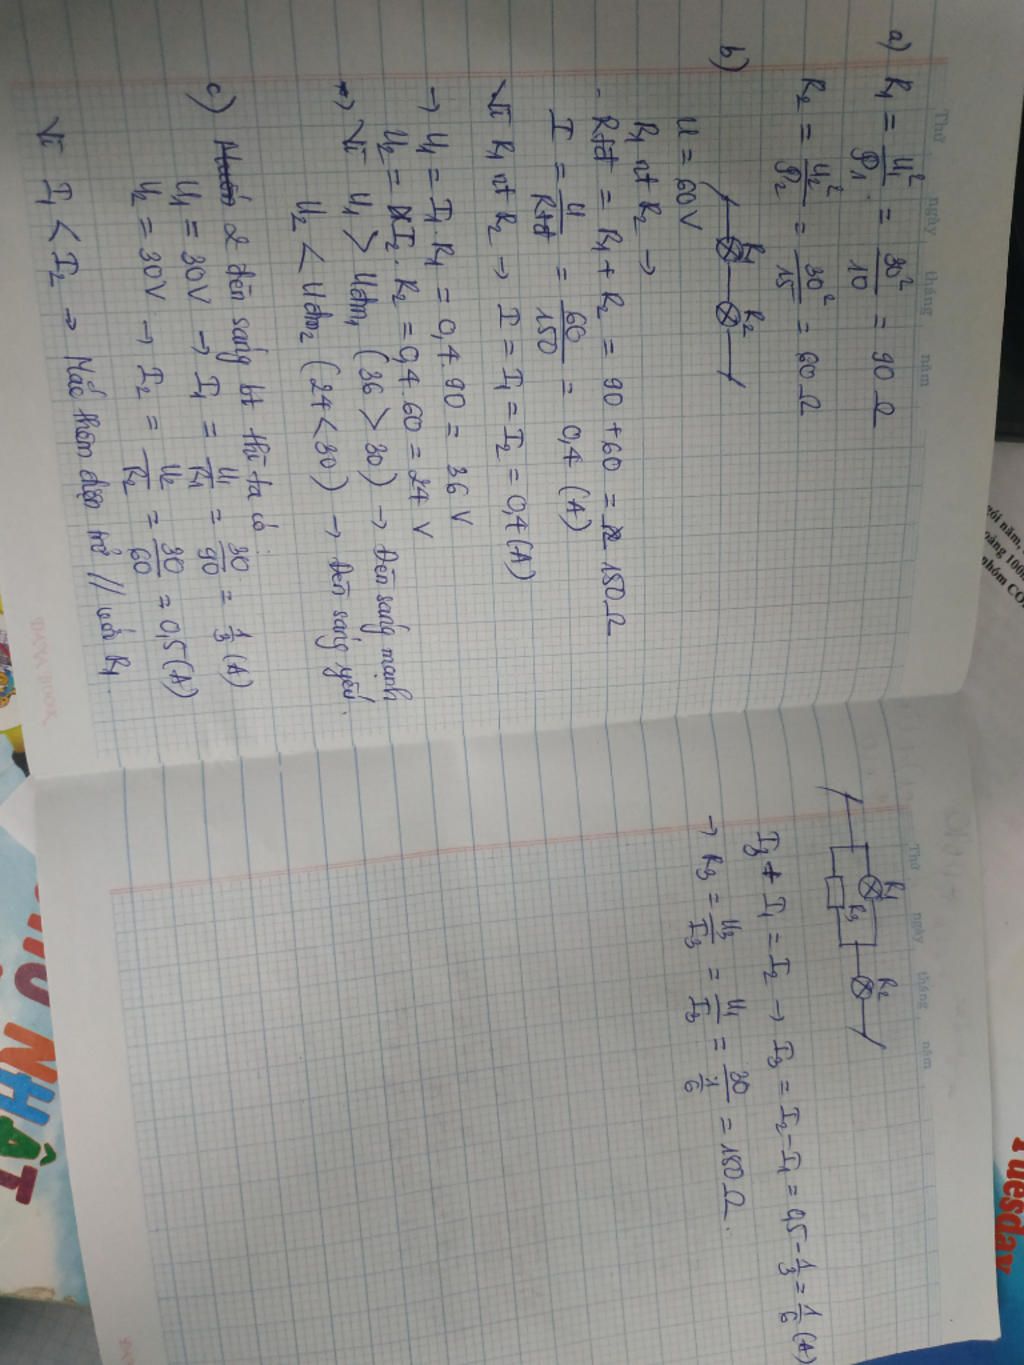 Thứ ngày tháng năm
a) R₁ = U₁²/P₁ = 30²/10 = 90 Ω
R₂ = U₂²/P₂ = 30²/15 = 60 Ω
b)
R₁ R₂
U = 60V
R₁ nt R₂ →
- Rtđ = R₁ + R₂ = 90 + 60 = 150 Ω
I = U/Rtđ = 60/150 = 0,4 (A)
Vì R₁ nt R₂ → I = I₁ = I₂ = 0,4 (A)
→ U₁ = I₁.R₁ = 0,4.90 = 36 V
U₂ = I₂.R₂ = 0,4.60 = 24 V
→ Vì U₁ > Uđm₁ (36 > 30) → Đèn sáng mạnh
U₂ < Uđm₂ (24 < 30) → Đèn sáng yếu.
c) 2 đèn sáng bt thì ta có:
U₁ = 30V → I₁ = U₁/R₁ = 30/90 = 1/3 (A)
U₂ = 30V → I₂ = U₂/R₂ = 30/60 = 0,5 (A)
Vì I₁ < I₂ → Mắc thêm điện trở // với R₁
Thứ ngày tháng năm
R₁ R₂
R₃
I₃ + I₁ = I₂ → I₃ = I₂ - I₁ = 0,5 - 1/3 = 1/6 (A)
→ R₃ = U₃/I₃ = U₁/I₃ = 30/1/6 = 180 Ω.
NHẬT
Tuesday